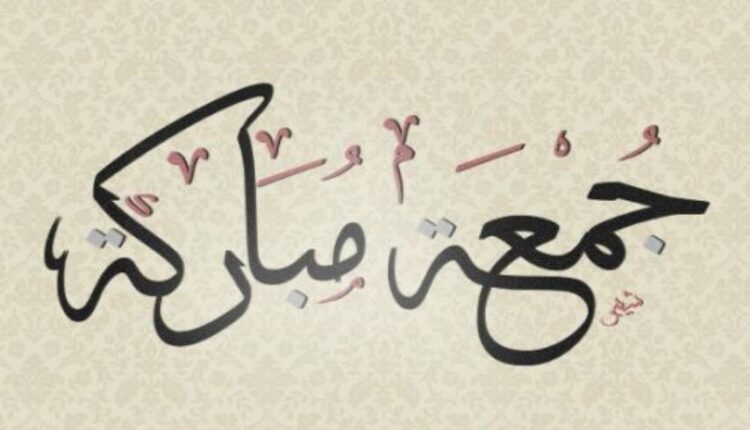 جُمعَة مُبَاركة